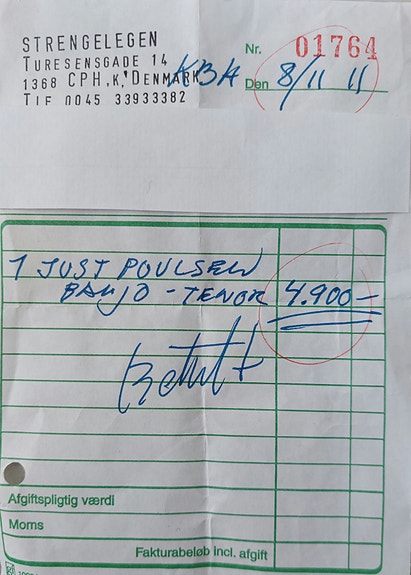 STRENGELEGEN
TURESENSGADE 14
1368 CPH.K, DENMARK
TLF 0045 33933382
KBH
Nr. 01764
Den 8/11 11
1 JUST POULSEN
BANJO - TENOR 4.900-
Betalt
Afgiftspligtig værdi
Moms
Fakturabeløb incl. afgift